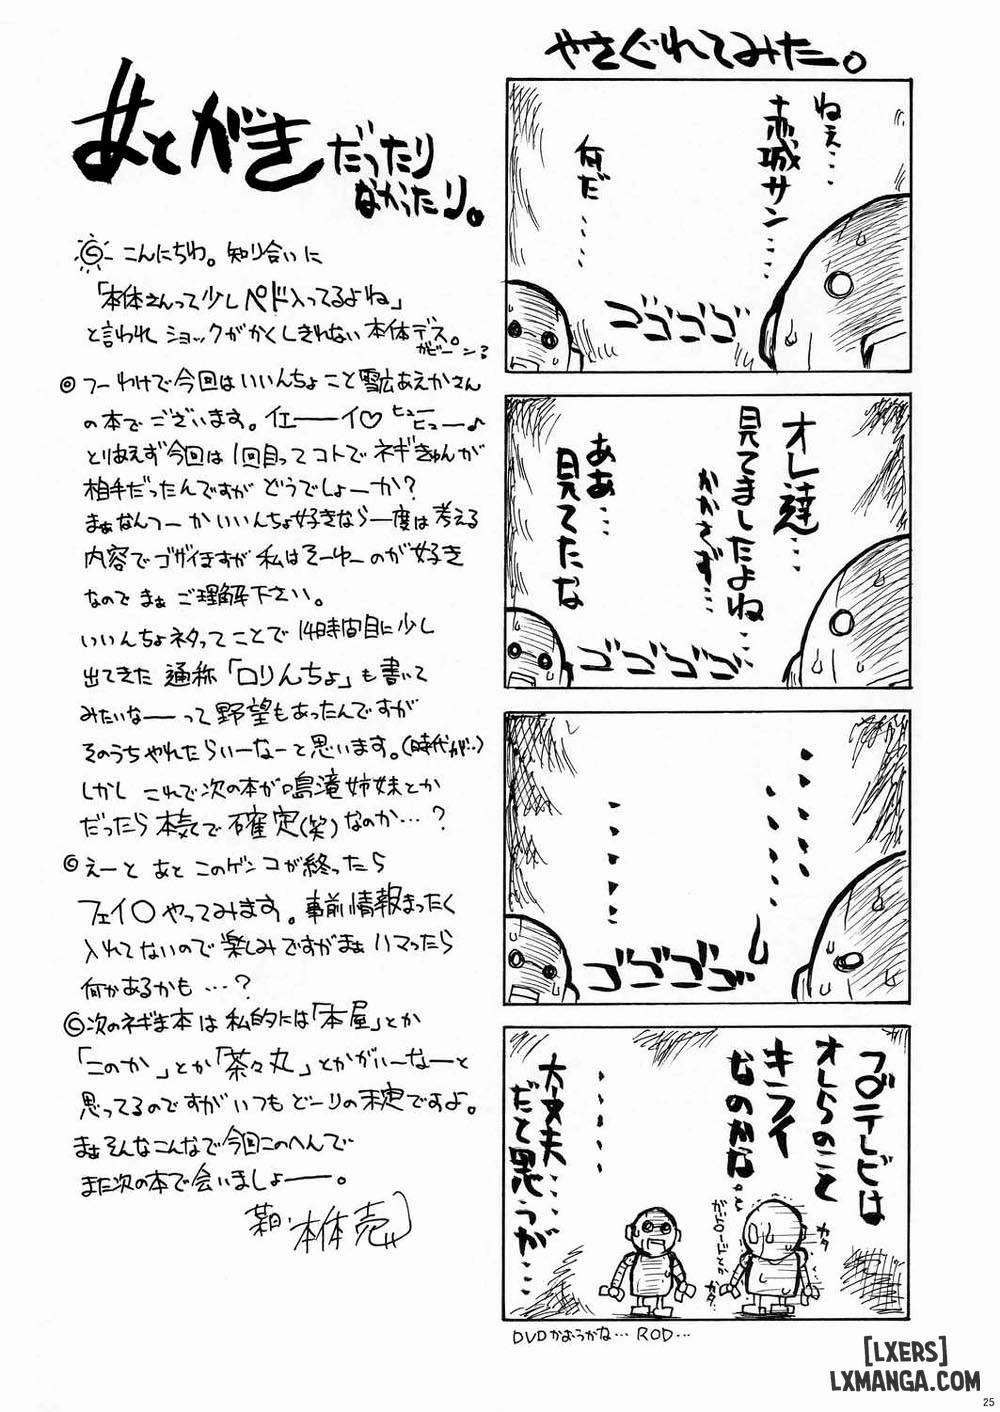 あとがき だったり
なかったり。
こんにちわ。知り合いに
「本体さんって少しペド入ってるよね」
と言われ ショックがかくしきれない 本体デス。
ガビーン
◎ つーわけで今回はいいんちょこと雪広あえかさん
の本でございます。イエーーイ♡ ヒューヒュー♪
とりあえず今回は1回目ってコトで ネギきゅんが
相手だったんですが どうでしょーか?
まぁなんつーか いいんちょ好きなら一度は考える
内容でゴザイますが 私はそーゆーのが好き
なので まぁ ご理解下さい。
いいんちょネタってことで 14時間目に少し
出てきた 通称「ロりんちょ」も書いて
みたいなーーって 野望もあったんですが
そのうちやれたらいーなーと思います。(時代が‥)
しかし これで次の本が鳴滝姉妹とか
だったら 本気で 不確定(笑)なのか…?
◎ えーと あと このゲンコが終ったら
フェイ〇 やってみます。事前情報まったく
入れてないので 楽しみですがまぁ ハマったら
何かあるかも…?
◎ 次のネギま本は 私的には「本屋」とか
「このか」とか「茶々丸」とかがいーなーと
思ってるのですが いつもどーりの未定ですよ。
まぁそんなこんなで 今回このへんで
また次の本で会いましょーー。
本体 売
やさぐれてみたー。
ねぇ…
赤城サン……
何だ…
ゴゴゴゴ
オレ達…
見てましたよね…
かかさず…
ああ…
見てたな
ゴゴゴゴ
ゴゴゴゴ
フ〇テレビは
オレらのこと
キライ
なのかな。と
ガ〇ロードとか
カタ
カタ
大丈夫…
だと思うが…
DVDかおうかな… ROD…
[LXERS]
LXMANGA.COM
25